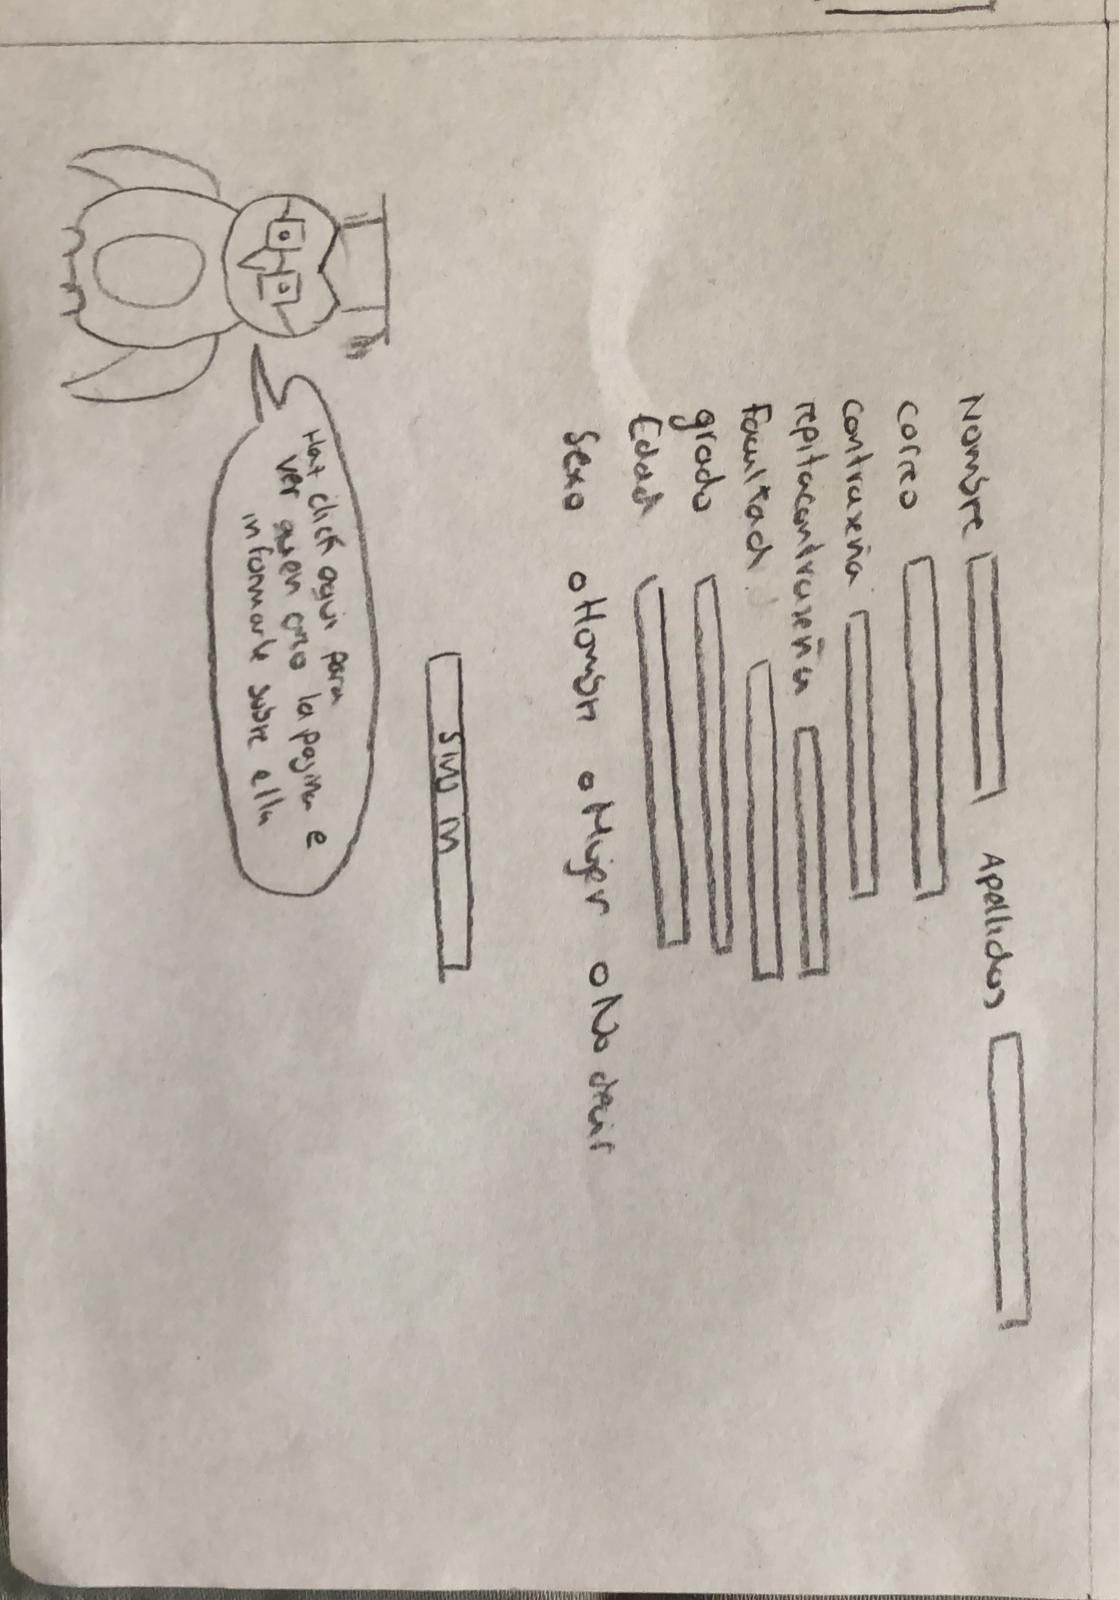 Nombre Apellidos
correo
contraseña
repita contraseña
facultad
grado
Edad
Sexo o Hombre o Mujer o No decir
Haz click aqui para
ver quien creo la pagina e
informarte sobre ella